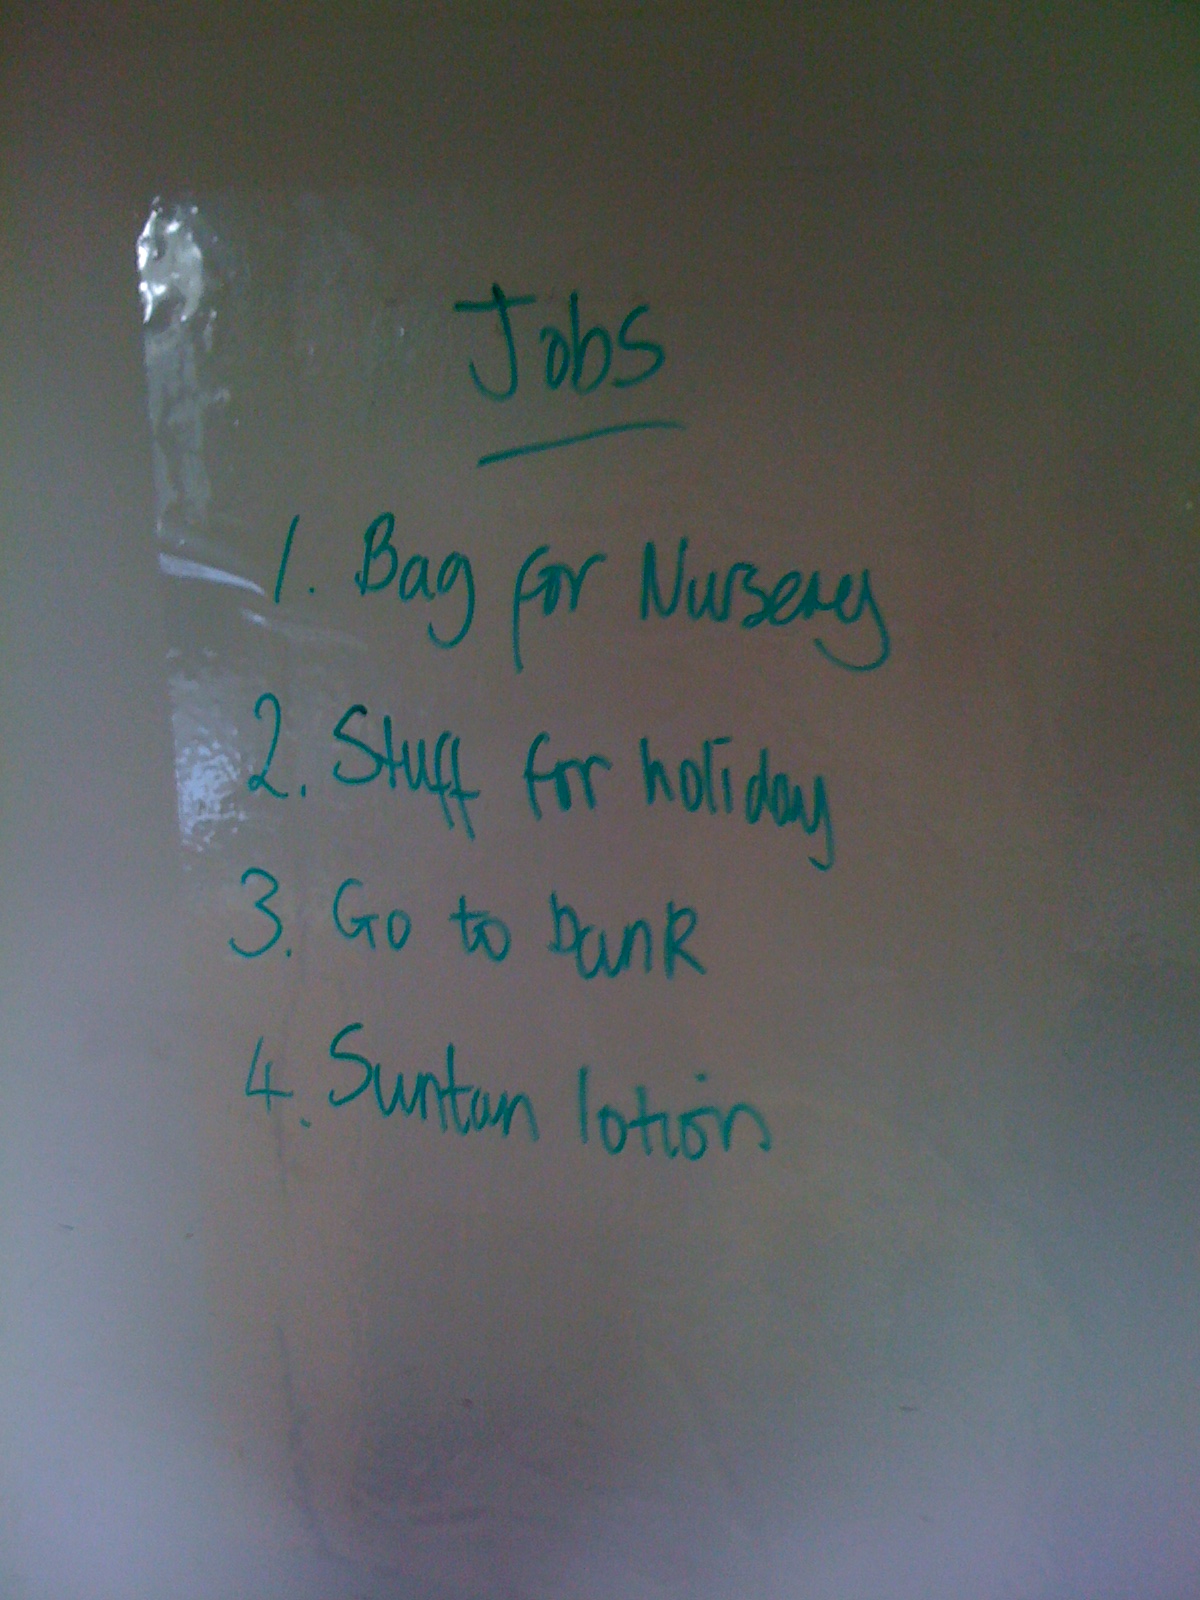 Jobs
1. Bag for Nursery
2. Stuff for holiday
3. Go to bank
4. Suntan lotion